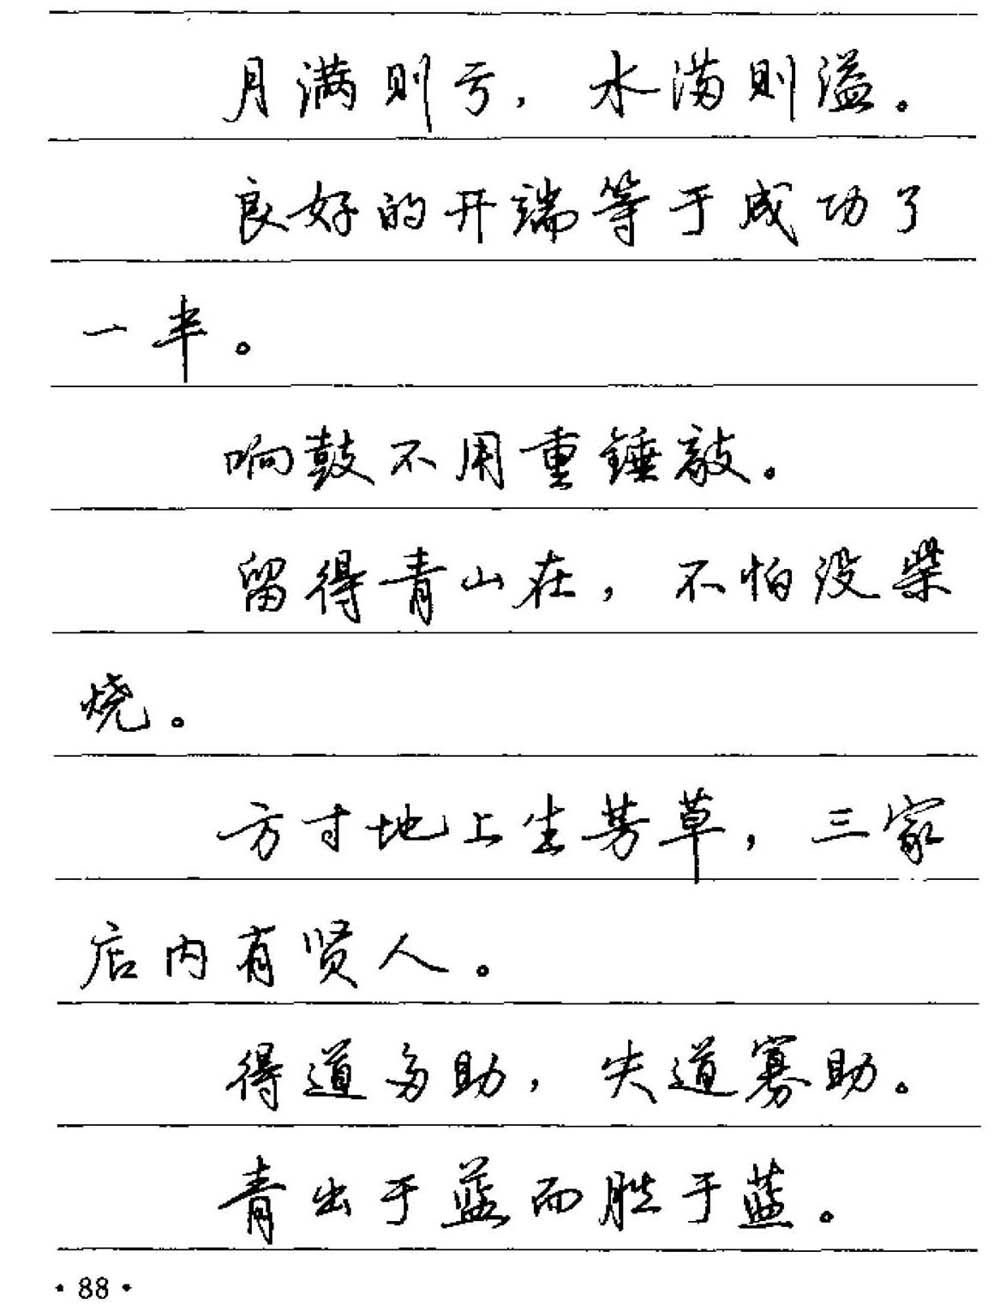 月满则亏，水满则溢。
良好的开端等于成功了
一半。
响鼓不用重锤敲。
留得青山在，不怕没柴
烧。
方寸地上生芳草，三家
店内有贤人。
得道多助，失道寡助。
青出于蓝而胜于蓝。
·88·